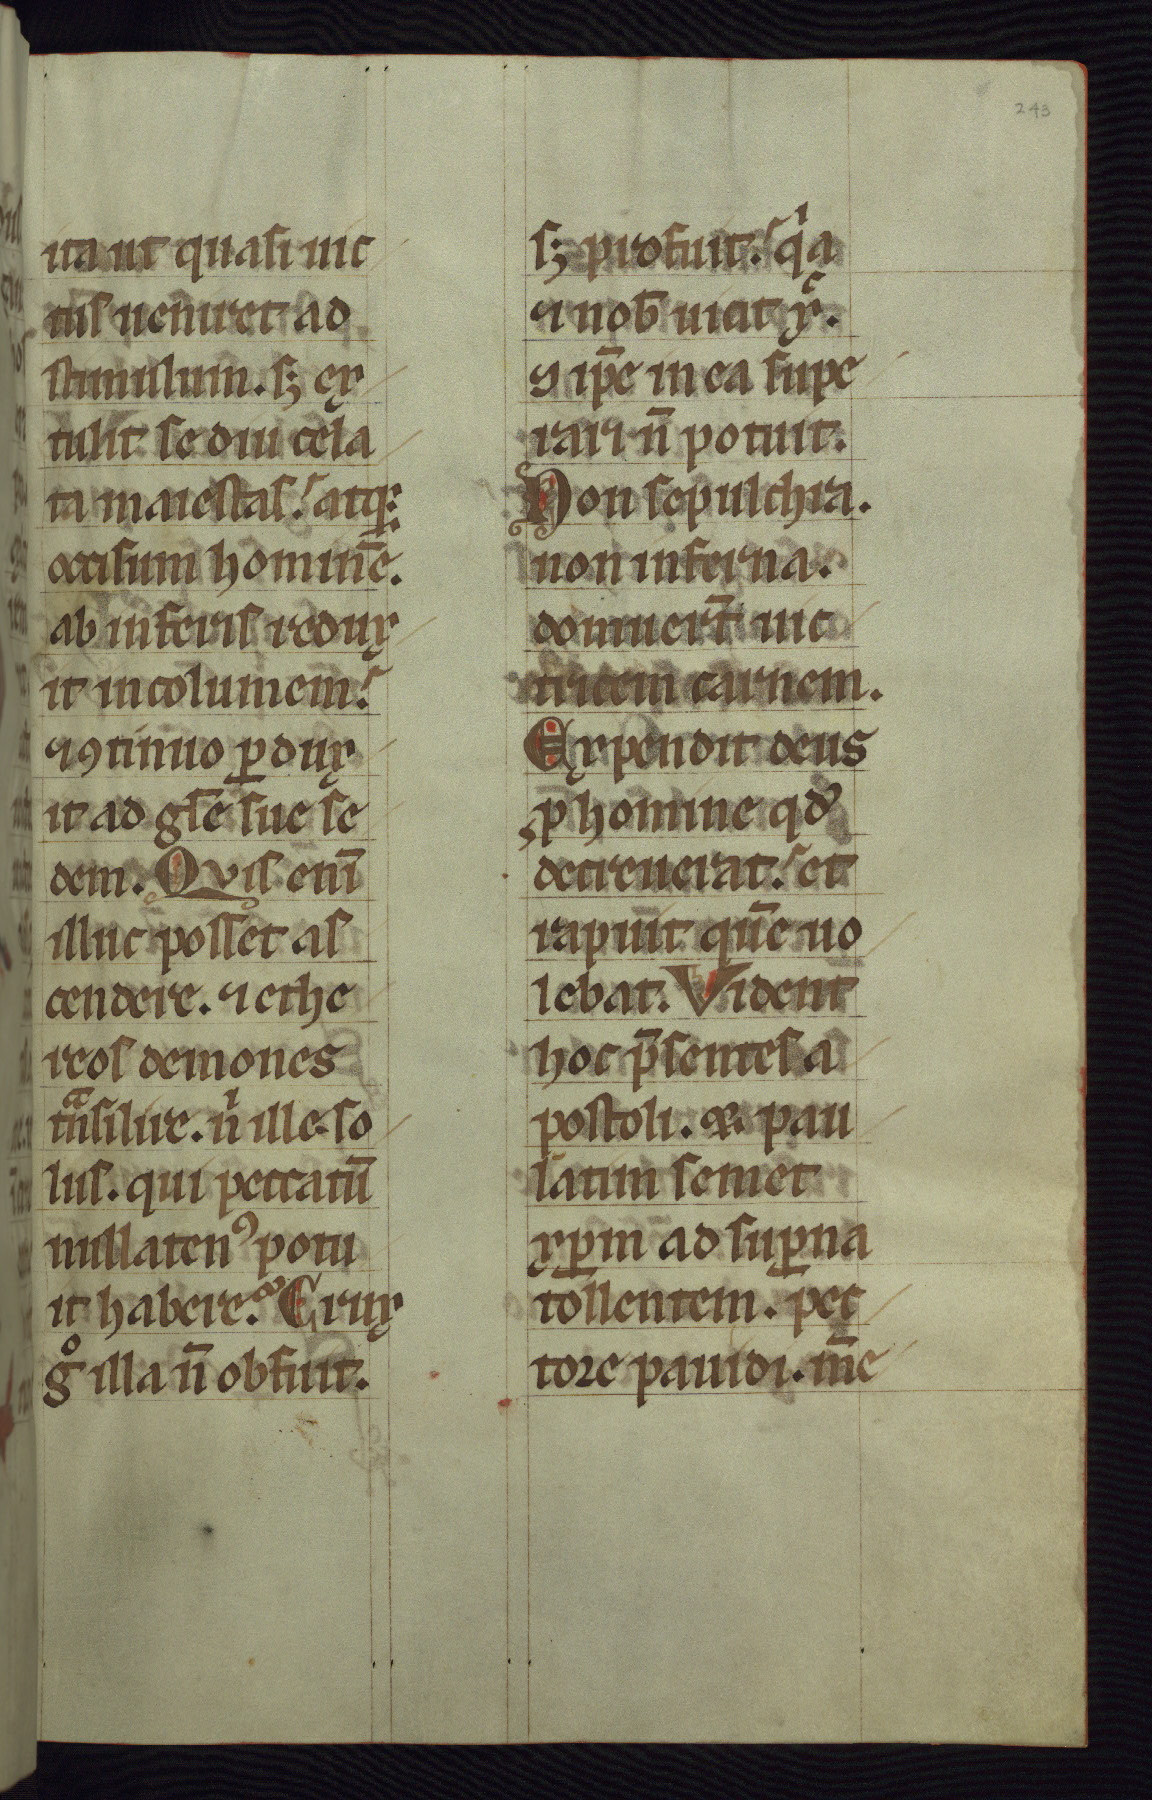 243
ita ut quasi uic
tus ueniret ad
stimulum. sꝫ ex
tulit se diu cela
ta maiestas. atqꝫ
occisum hominē.
ab inferis redux
it incolumem.
⁊ ꝯtinuo ꝑdux
it ad gl̄e sue se
dem. Quis enī
illuc posset as
cendere. ⁊ ethe
reos demones
tͣnsilire. nͥ ille so
lus. qui peccatū
nullatenꝰ potu
it habere. Crux
gͦ illa n̄ obfuit.
sꝫ profuit. qͥa
⁊ nob̄ uicit xͨ.
⁊ ip̄e in ea supe
rari n̄ potuit.
Non sepulchra.
non inferna.
domuer̄t uic
tricem carnem.
Expendit deus
ꝓ homine qd̾
decreuerat. et
rapuit que̅ uo
lebat. Vident
hoc p̄sentes a
postoli. ⁊ pau
latim semet
xꝑm ad suꝑna
tollentem. pec
tore pauidi. m̄e